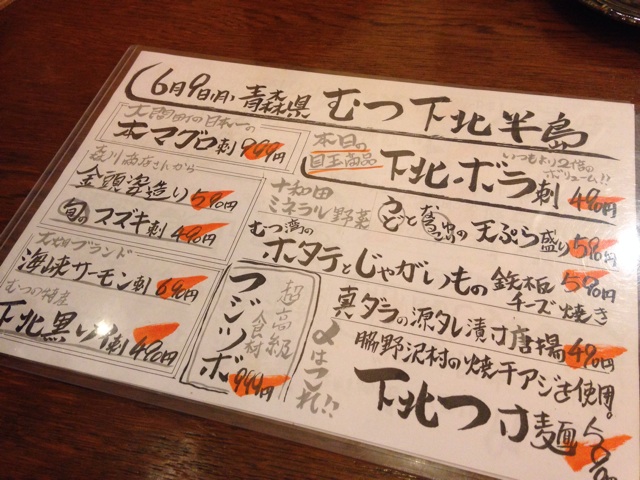 6月9日(月) 青森県 むつ下北半島
大間町の日本一の
本マグロ刺 999円
森川商店さんから
金頭姿造り 590円
旬の スズキ刺 490円
ブランド
海峡サーモン刺 690円
むつの特産
下北黒 刺 490円
本日の
目玉商品
いつもより2倍の
ボリューム!!
下北ボラ刺 490円
十和田
ミネラル野菜
うどと の天ぷら盛り 590円
むつ湾の
ホタテとじゃがいもの 鉄板 590円
チーズ焼き
真ダラの源タレ漬け唐揚 490円
超高級
食材
フジツボ
999円
〆はこれ!!
脇野沢村の焼干アジを使用。
下北つけ麺 590円